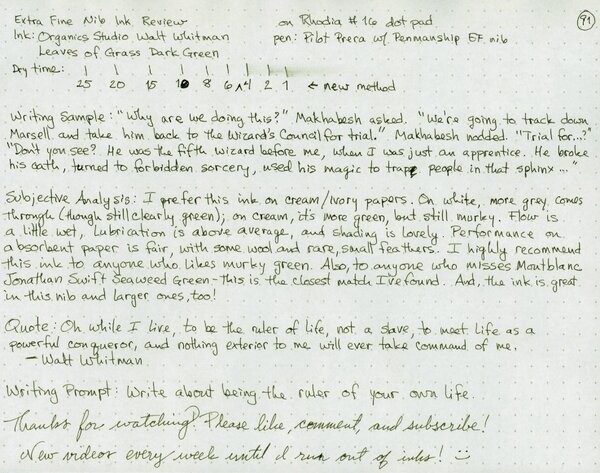 Extra Fine Nib Ink Review on Rhodia #16 dot pad 91
Ink: Organics Studio Walt Whitman pen: Pilot Prera w/ Penmanship EF nib
Leaves of Grass Dark Green
Dry time: | | | | | | | | |
25 20 15 10 8 6 4 2 1 ← new method
Writing Sample: "Why are we doing this?" Makhabesh asked. "We're going to track down
Marsell and take him back to the Wizard's Council for trial." Makhabesh nodded. "Trial for...?"
"Don't you see? He was the fifth wizard before me, when I was just an apprentice. He broke
his oath, turned to forbidden sorcery, used his magic to trap people in that sphinx..."
Subjective Analysis: I prefer this ink on cream/ivory papers. On white, more grey comes
through (though still clearly green); on cream, it's more green, but still murky. Flow is
a little wet, lubrication is above average, and shading is lovely. Performance on
absorbent paper is fair, with some wool and rare, small feathers. I highly recommend
this ink to anyone who likes murky green. Also, to anyone who misses Montblanc
Jonathan Swift Seaweed Green - this is the closest match I've found. And, the ink is great
in this nib and larger ones, too!
Quote: Oh while I live, to be the ruler of life, not a slave, to meet life as a
powerful conqueror, and nothing exterior to me will ever take command of me.
- Walt Whitman
Writing Prompt: Write about being the ruler of your own life.
Thanks for watching! Please like, comment, and subscribe!
New videos every week until I run out of inks! :)